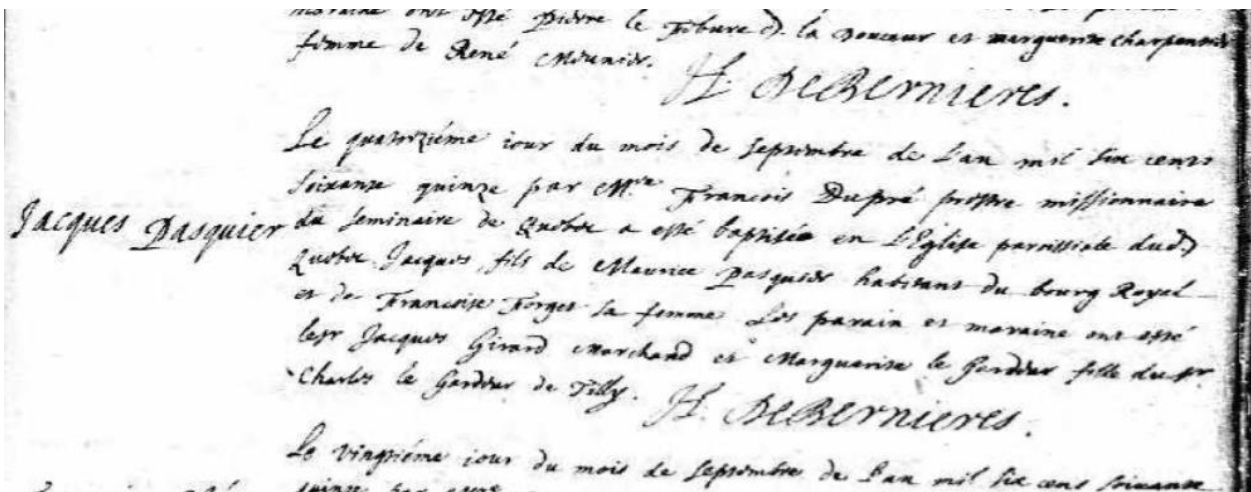 maraine ont esté Pierre le Febure d. la douceur et marguerite charpentier
femme de René Meunier.
H. DeBernieres.
Le quatorziéme iour du mois de septembre de L'an mil six cents
soixante quinze par Mre Francois Dupré prestre missionnaire
Jacques Pasquier
du seminaire de Quebec a esté baptisée en L'Eglise paroissiale dud.
Quebec Jacques fils de Maurice Pasquier habitant du bourg Royal
et de Francoise Forget sa femme Les parain et maraine ont esté
lesr Jacques Girard Marchand et Marguerite le Gardeur fille du sr.
Charles le Gardeur de Tilly.
H. DeBernieres.
Le vingtiéme iour du mois de septembre de L'an mil six cens soixante
quinze par